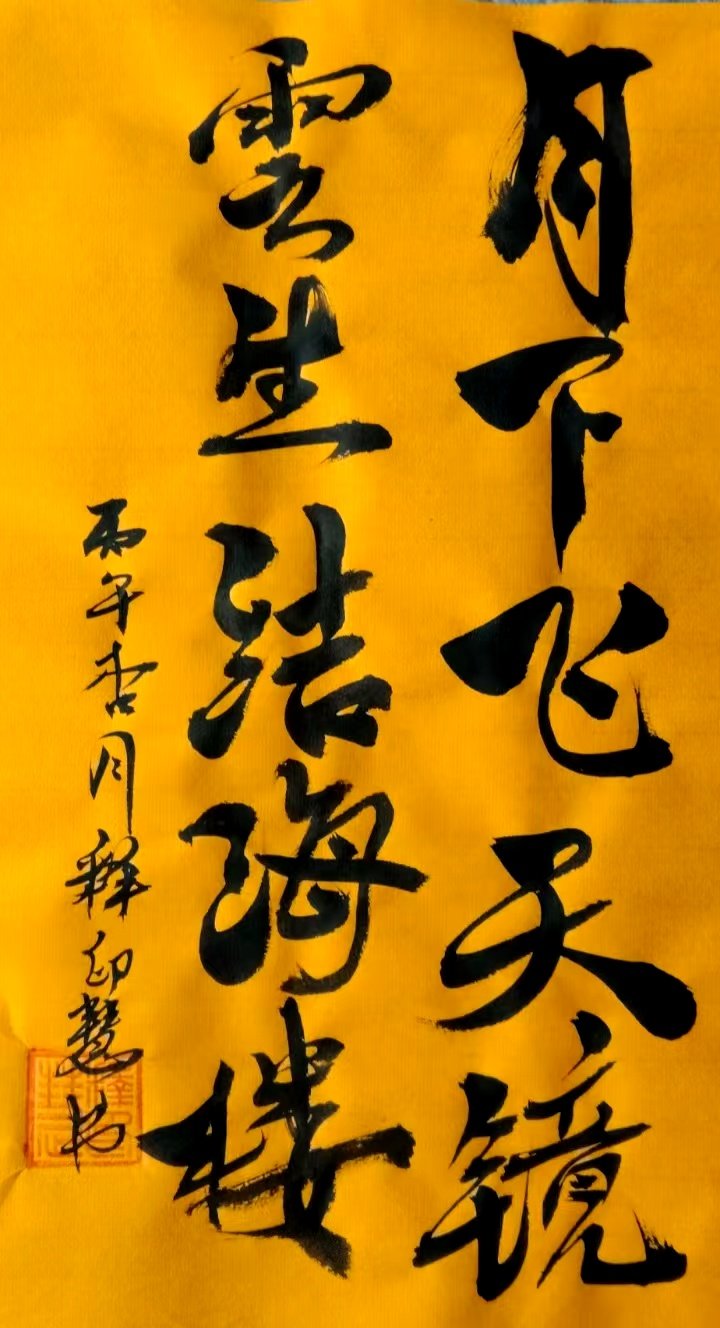 月下飞天镜
雲生结海楼
丙午杏月释印慧书